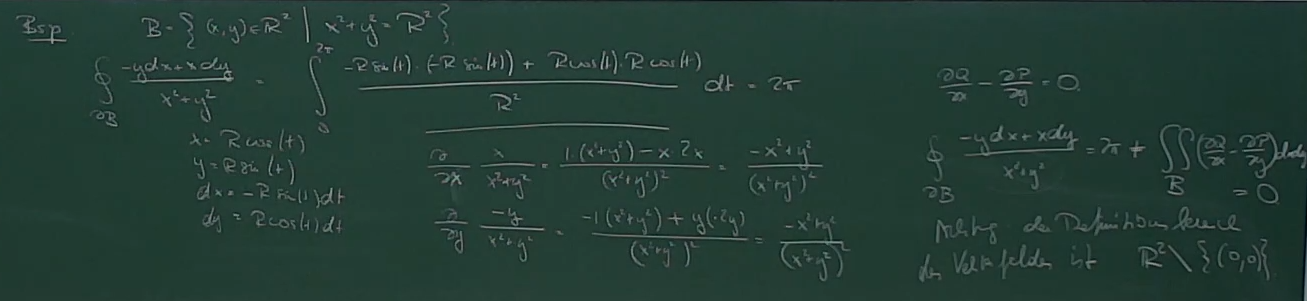 Bsp. B = { (x,y) ∈ ℝ² | x²+y² = R² }
∮_{∂B} (-ydx+xdy)/(x²+y²) = ∫_0^{2π} (-R sin(t)·(-R sin(t)) + R cos(t)·R cos(t))/R² dt = 2π
x = R cos(t)
y = R sin(t)
dx = -R sin(t) dt
dy = R cos(t) dt
∂/∂x x/(x²+y²) = (1·(x²+y²) - x·2x)/(x²+y²)² = (-x²+y²)/(x²+y²)²
∂/∂y -y/(x²+y²) = (-1(x²+y²) + y(·2y))/(x²+y²)² = (-x²+y²)/(x²+y²)²
∂Q/∂x - ∂P/∂y = 0.
∮_{∂B} (-ydx+xdy)/(x²+y²) = 2π ≠ ∬_B (∂Q/∂x - ∂P/∂y) dxdy
= 0
Achtung der Definitionsbereich
des Vektorfeldes ist ℝ² \ {(0,0)}